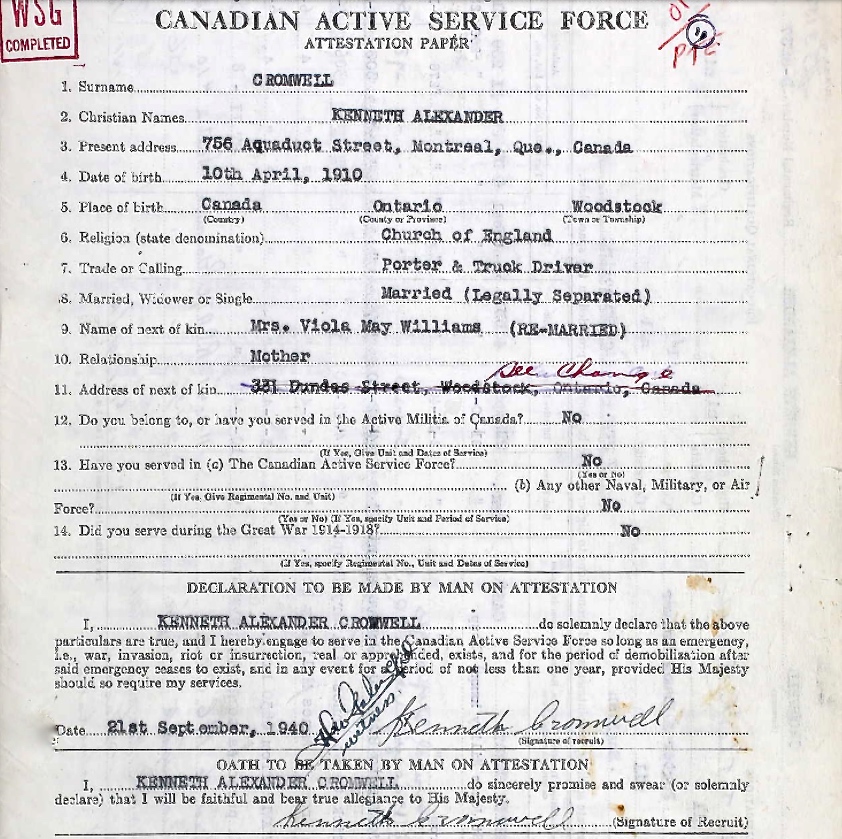 WSG
COMPLETED
CANADIAN ACTIVE SERVICE FORCE
ATTESTATION PAPER
PTE
1. Surname CROMWELL
2. Christian Names KENNETH ALEXANDER
3. Present address 756 Aquaduct Street, Montreal, Que., Canada
4. Date of birth 10th April, 1910
5. Place of birth Canada Ontario Woodstock
(Country) (County or Province) (Town or Township)
6. Religion (state denomination) Church of England
7. Trade or Calling Porter & Truck Driver
8. Married, Widower or Single Married (Legally Separated)
9. Name of next of kin Mrs. Viola May Williams (RE-MARRIED)
10. Relationship Mother
See Change
11. Address of next of kin 331 Dundas Street, Woodstock, Ontario, Canada
12. Do you belong to, or have you served in the Active Militia of Canada? No
(If Yes, Give Unit and Dates of Service)
13. Have you served in (a) The Canadian Active Service Force? No
(Yes or No)
(b) Any other Naval, Military, or Air
(If Yes, Give Regimental No. and Unit)
Force? No
(Yes or No) (If Yes, specify Unit and Period of Service)
14. Did you serve during the Great War 1914-1918? No
(If Yes, specify Regimental No., Unit and Dates of Service)
DECLARATION TO BE MADE BY MAN ON ATTESTATION
I, KENNETH ALEXANDER CROMWELL do solemnly declare that the above
particulars are true, and I hereby engage to serve in the Canadian Active Service Force so long as an emergency,
i.e., war, invasion, riot or insurrection, real or apprehended, exists, and for the period of demobilization after
said emergency ceases to exist, and in any event for a period of not less than one year, provided His Majesty
should so require my services.
Date 21st September, 1940 witness Kenneth Cromwell
(Signature of recruit)
OATH TO BE TAKEN BY MAN ON ATTESTATION
I, KENNETH ALEXANDER CROMWELL do sincerely promise and swear (or solemnly
declare) that I will be faithful and bear true allegiance to His Majesty.
Kenneth Cromwell (Signature of Recruit)